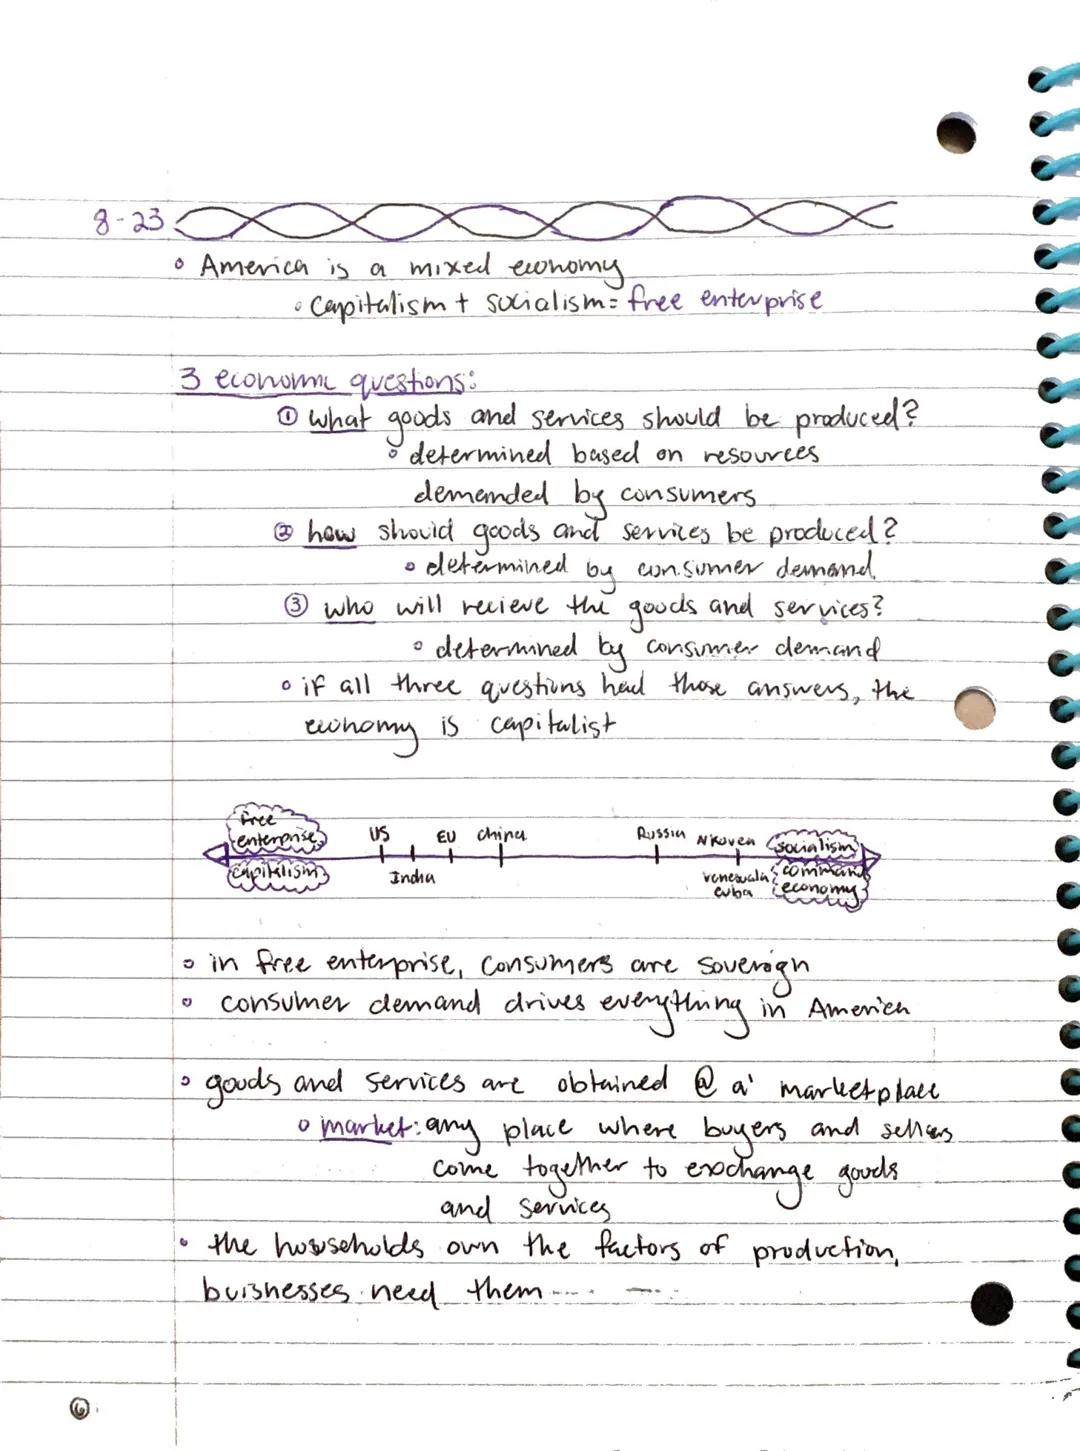 8-23
◦ America is a mixed economy
◦ Capitalism + socialism = free enterprise
3 economic questions:
① what goods and services should be produced?
◦ determined based on resources
demanded by consumers
② how should goods and services be produced?
◦ determined by consumer demand
③ who will recieve the goods and services?
◦ determined by consumer demand
◦ if all three questions had those answers, the
economy is capitalist
free
enterprise
US EU China Russia N Korea socialism
capitalism India venezuala command
cuba economy
◦ in free enterprise, consumers are soverign
◦ consumer demand drives everything in America
◦ goods and services are obtained @ a marketplace
◦ market: any place where buyers and sellers
come together to exchange goods
and services
◦ the households own the factors of production,
buisnesses need them
⑥